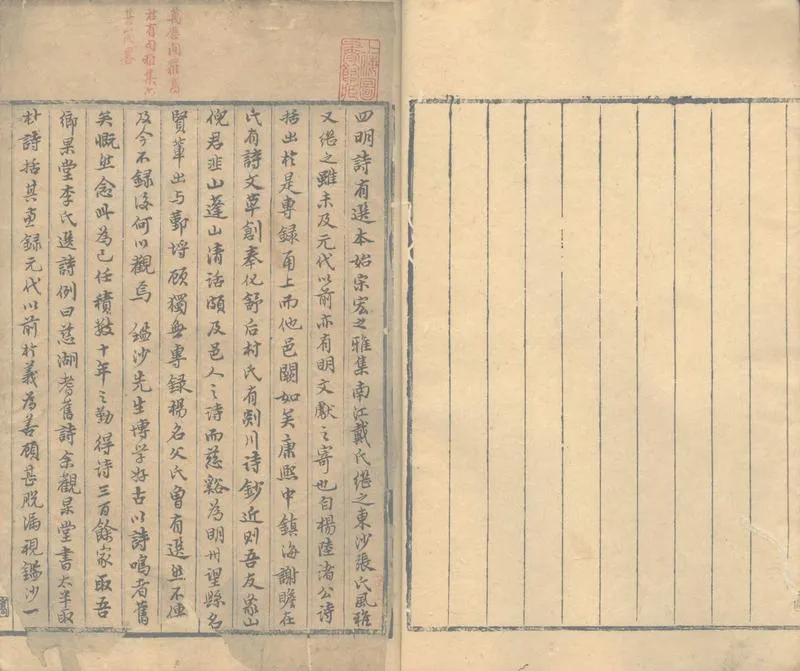 四明詩有選本始宗宏之雅集南江戴氏繼之東沙張氏風雅
又繼之雖未及元代以前亦有明文獻之寄也自楊陸渚公詩
括出於是專録甬上而他邑闕如矣康熙中鎮海謝贍在
氏有詩文草創奉化舒后村氏有剡川詩鈔近则吾友象山
倪君韭山蓬山清話頗及邑人之诗而慈谿為明州望縣名
賢輩出与鄞埒顧獨無專録楊名父氏曾有選然不傳
及今不録後何以觀焉 鑑沙先生博学好古以詩鳴者舊
矣慨然念此為己任積數十年之勤得诗三百餘家取吾
鄉杲堂李氏選詩例曰慈湖耆舊詩余觀杲堂書太半取
材詩括其直録元代以前於義為善顧甚脱漏視鑑沙一